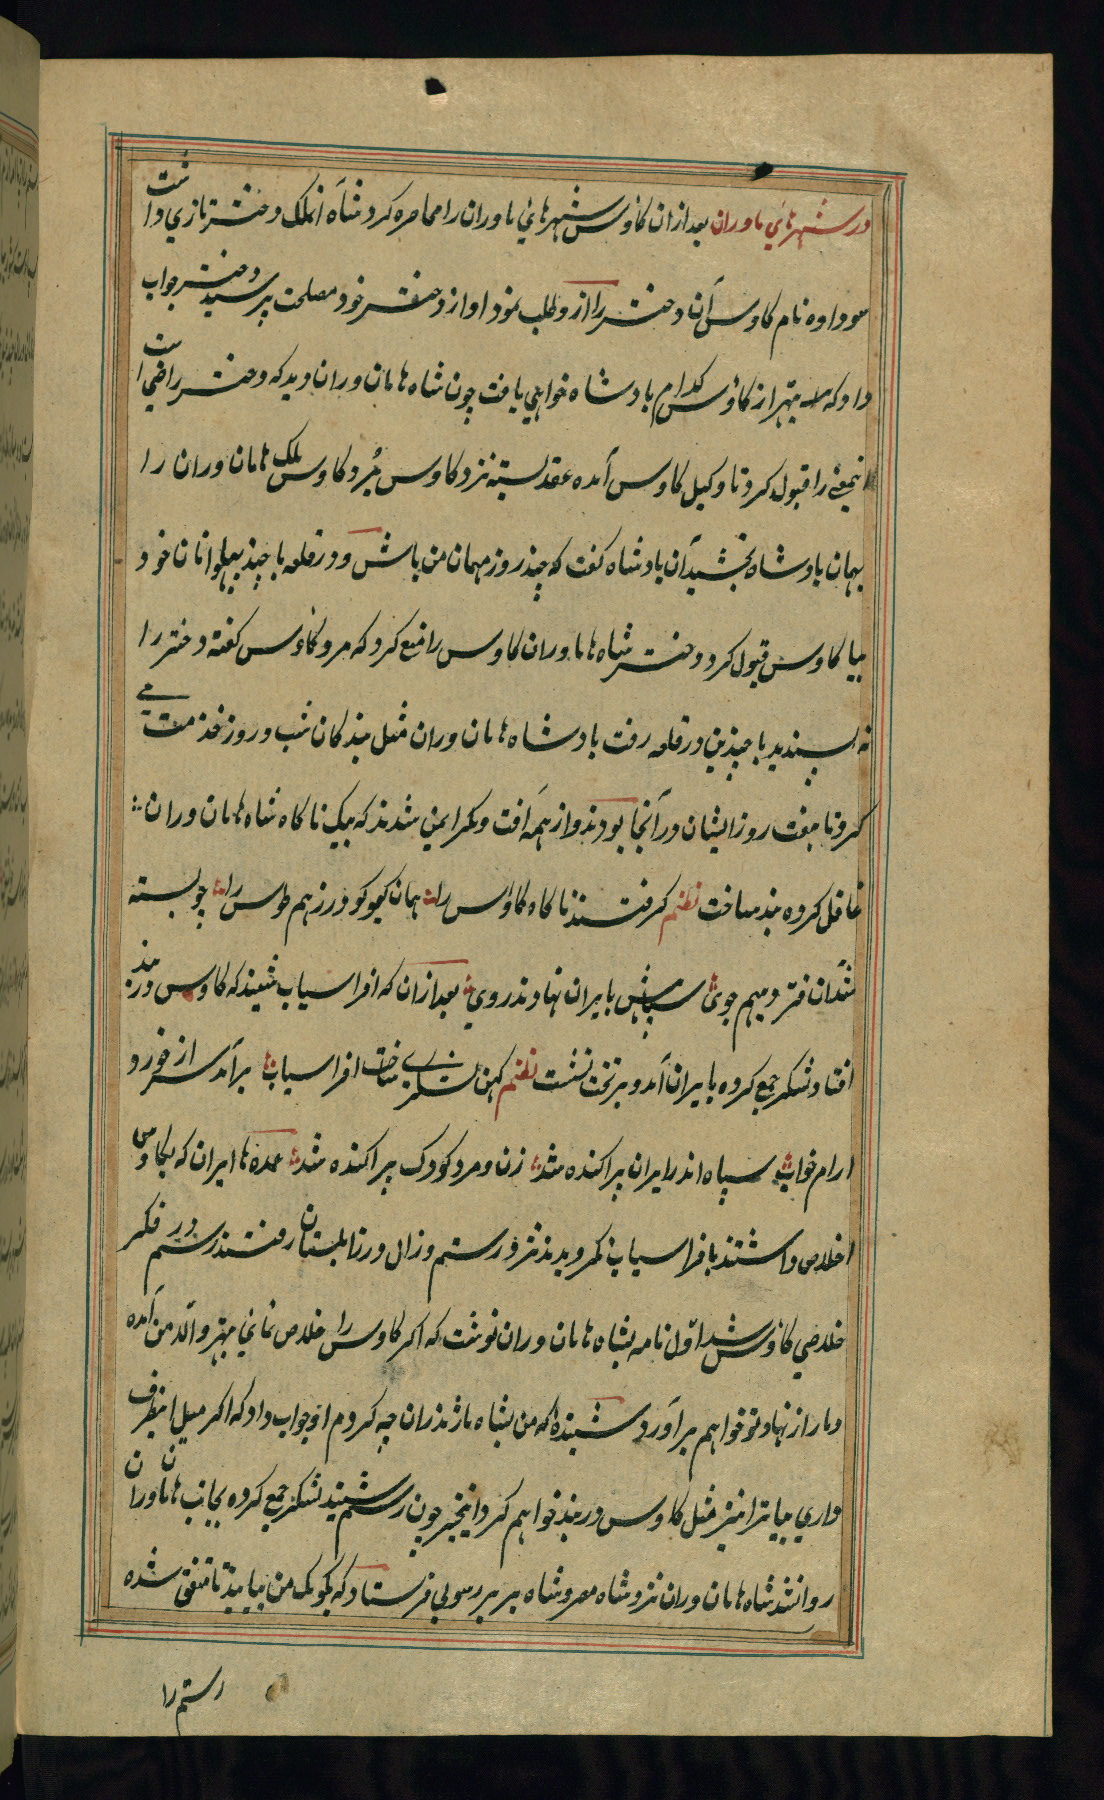 در شهرهای هاوران بعد ازان کاؤس شهرهای هاوران را محاصره کرد شاه انملک دختر نازی داشت
سوداوه نام کاوس آن دختر را ازو طلب نمود او از دختر خود مصلحت پرسید دختر جواب
داد که بهتر از کاؤس کدام بادشاه خواهی یافت چون شاه هامان وران دید که دختر راضی است
اینمعنی را قبول کرد تا وکیل کاوس آمده عقد بسته نزد کاوس بُرد کاوس ملک هامان وران را
بهمان بادشاه بخشید آن بادشاه گفت که چند روز مهمان من باش و در قلعه با چند پهلوانان خود
بیا کاوس قبول کرد دختر شاه هاماوران کاوس را منع کرد که مرو کاؤس گفته دختر را
نه پسندید با چندین در قلعه رفت بادشاه هامان وران مثل بندگان شب و روز خدمت می
کرد تا هفت روز ایشان در آنجا بودند و از همه آفت و مکر ایمن شدند که بیک ناگاه شاه هامان وران
غافل کرده بند ساخت نظم گرفتند ناگاه کاؤس را همان گیو گودرز هم طوس را چو بسته
شد آن فر دیهیم جوی سپاهش بایران نهادند روی بعد ازان که افراسیاب شنید که کاوس در بند
افتاد لشکر جمع کرده بایران آمد و بر تخت نشست نظم کهن لشکری ساخت افراسیاب برآمد سر از خورد
ارام خواب سپاه اندر ایران پراکنده شد زن و مرد کودک پراکنده شد عمده ها ایران که بکاوس
اخلاص داشتند بافراسیاب نگرویدند نزد رستم و زال در زابلستان رفتند رستم در فکر
خلاصی کاؤس شد اوّل نامه بشاه هامان وران نوشت که اگر کاوس را خلاص نمائی بهتر والّا من آمده
دمار از نهاد تو خواهم برآورد شنیدهٔ که من بشاه ماژندران چه کردم او جواب داد که اگر میل اینطرف
داری بیا ترا نیز مثل کاوس در بند خواهم کرد اینخبر چون رستم شنید لشکر جمع کرده بجانب هامان وران
روانشد شاه هامان وران نزد شاه مصر و شاه بربر رسولی فرستاد که بکومک من بیائید تا متفق شده
رستم را